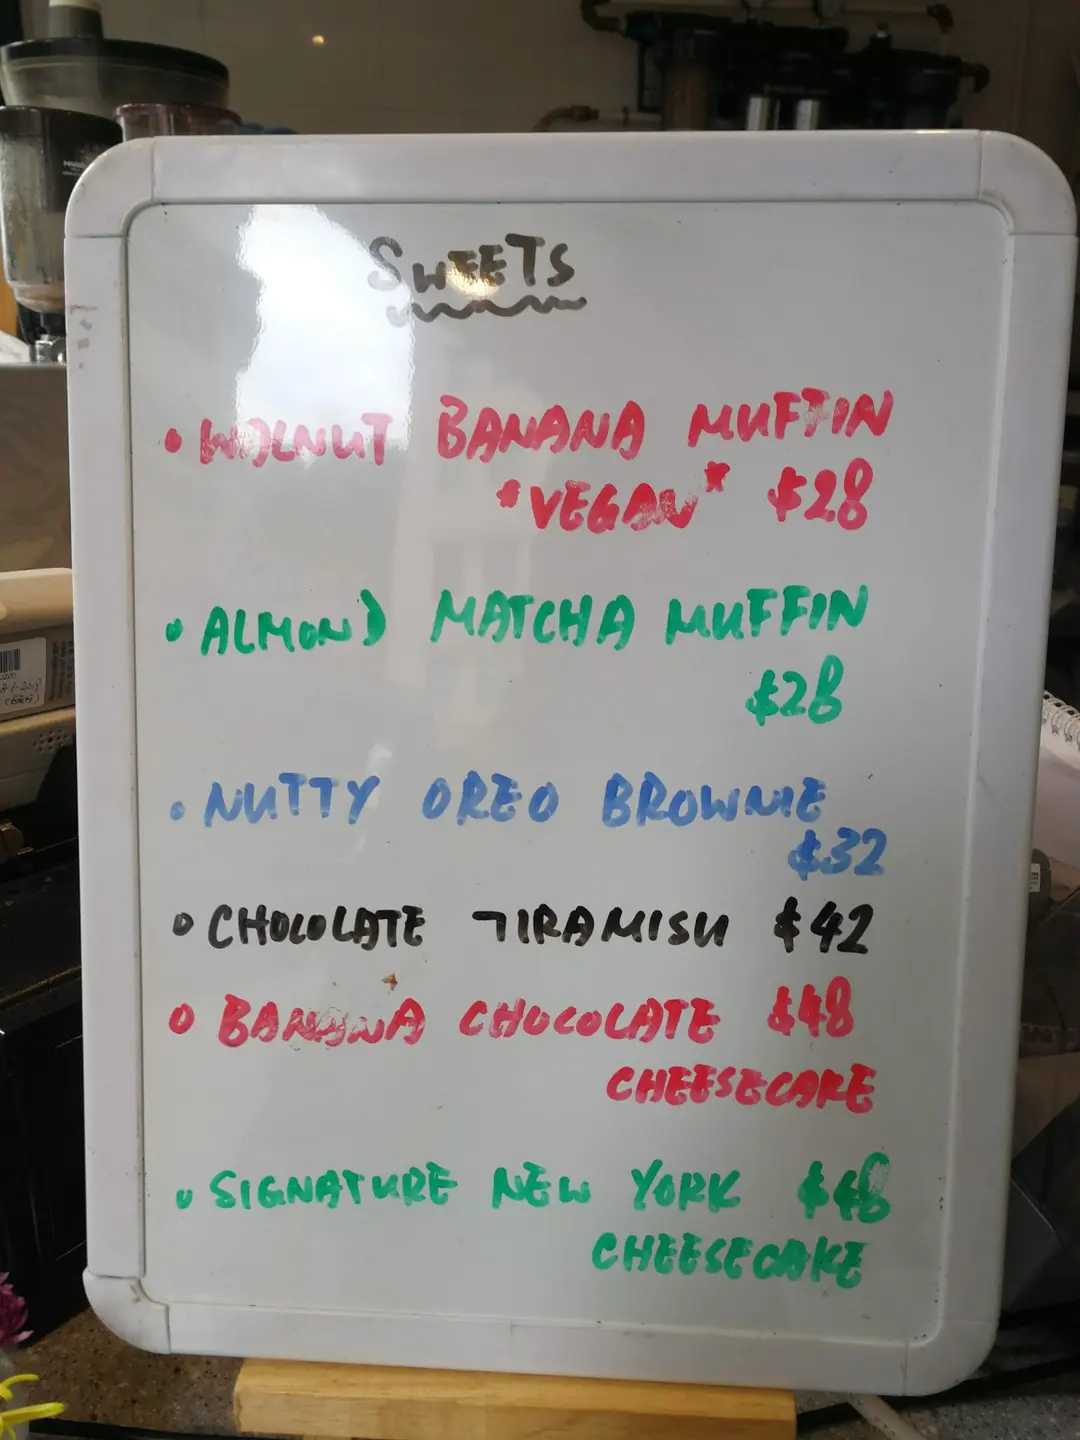 SWEETS
• WALNUT BANANA MUFFIN
*VEGAN* $28
• ALMOND MATCHA MUFFIN
$28
• NUTTY OREO BROWNIE
$32
• CHOCOLATE TIRAMISU $42
• BANANA CHOCOLATE $48
CHEESECAKE
• SIGNATURE NEW YORK $48
CHEESECAKE